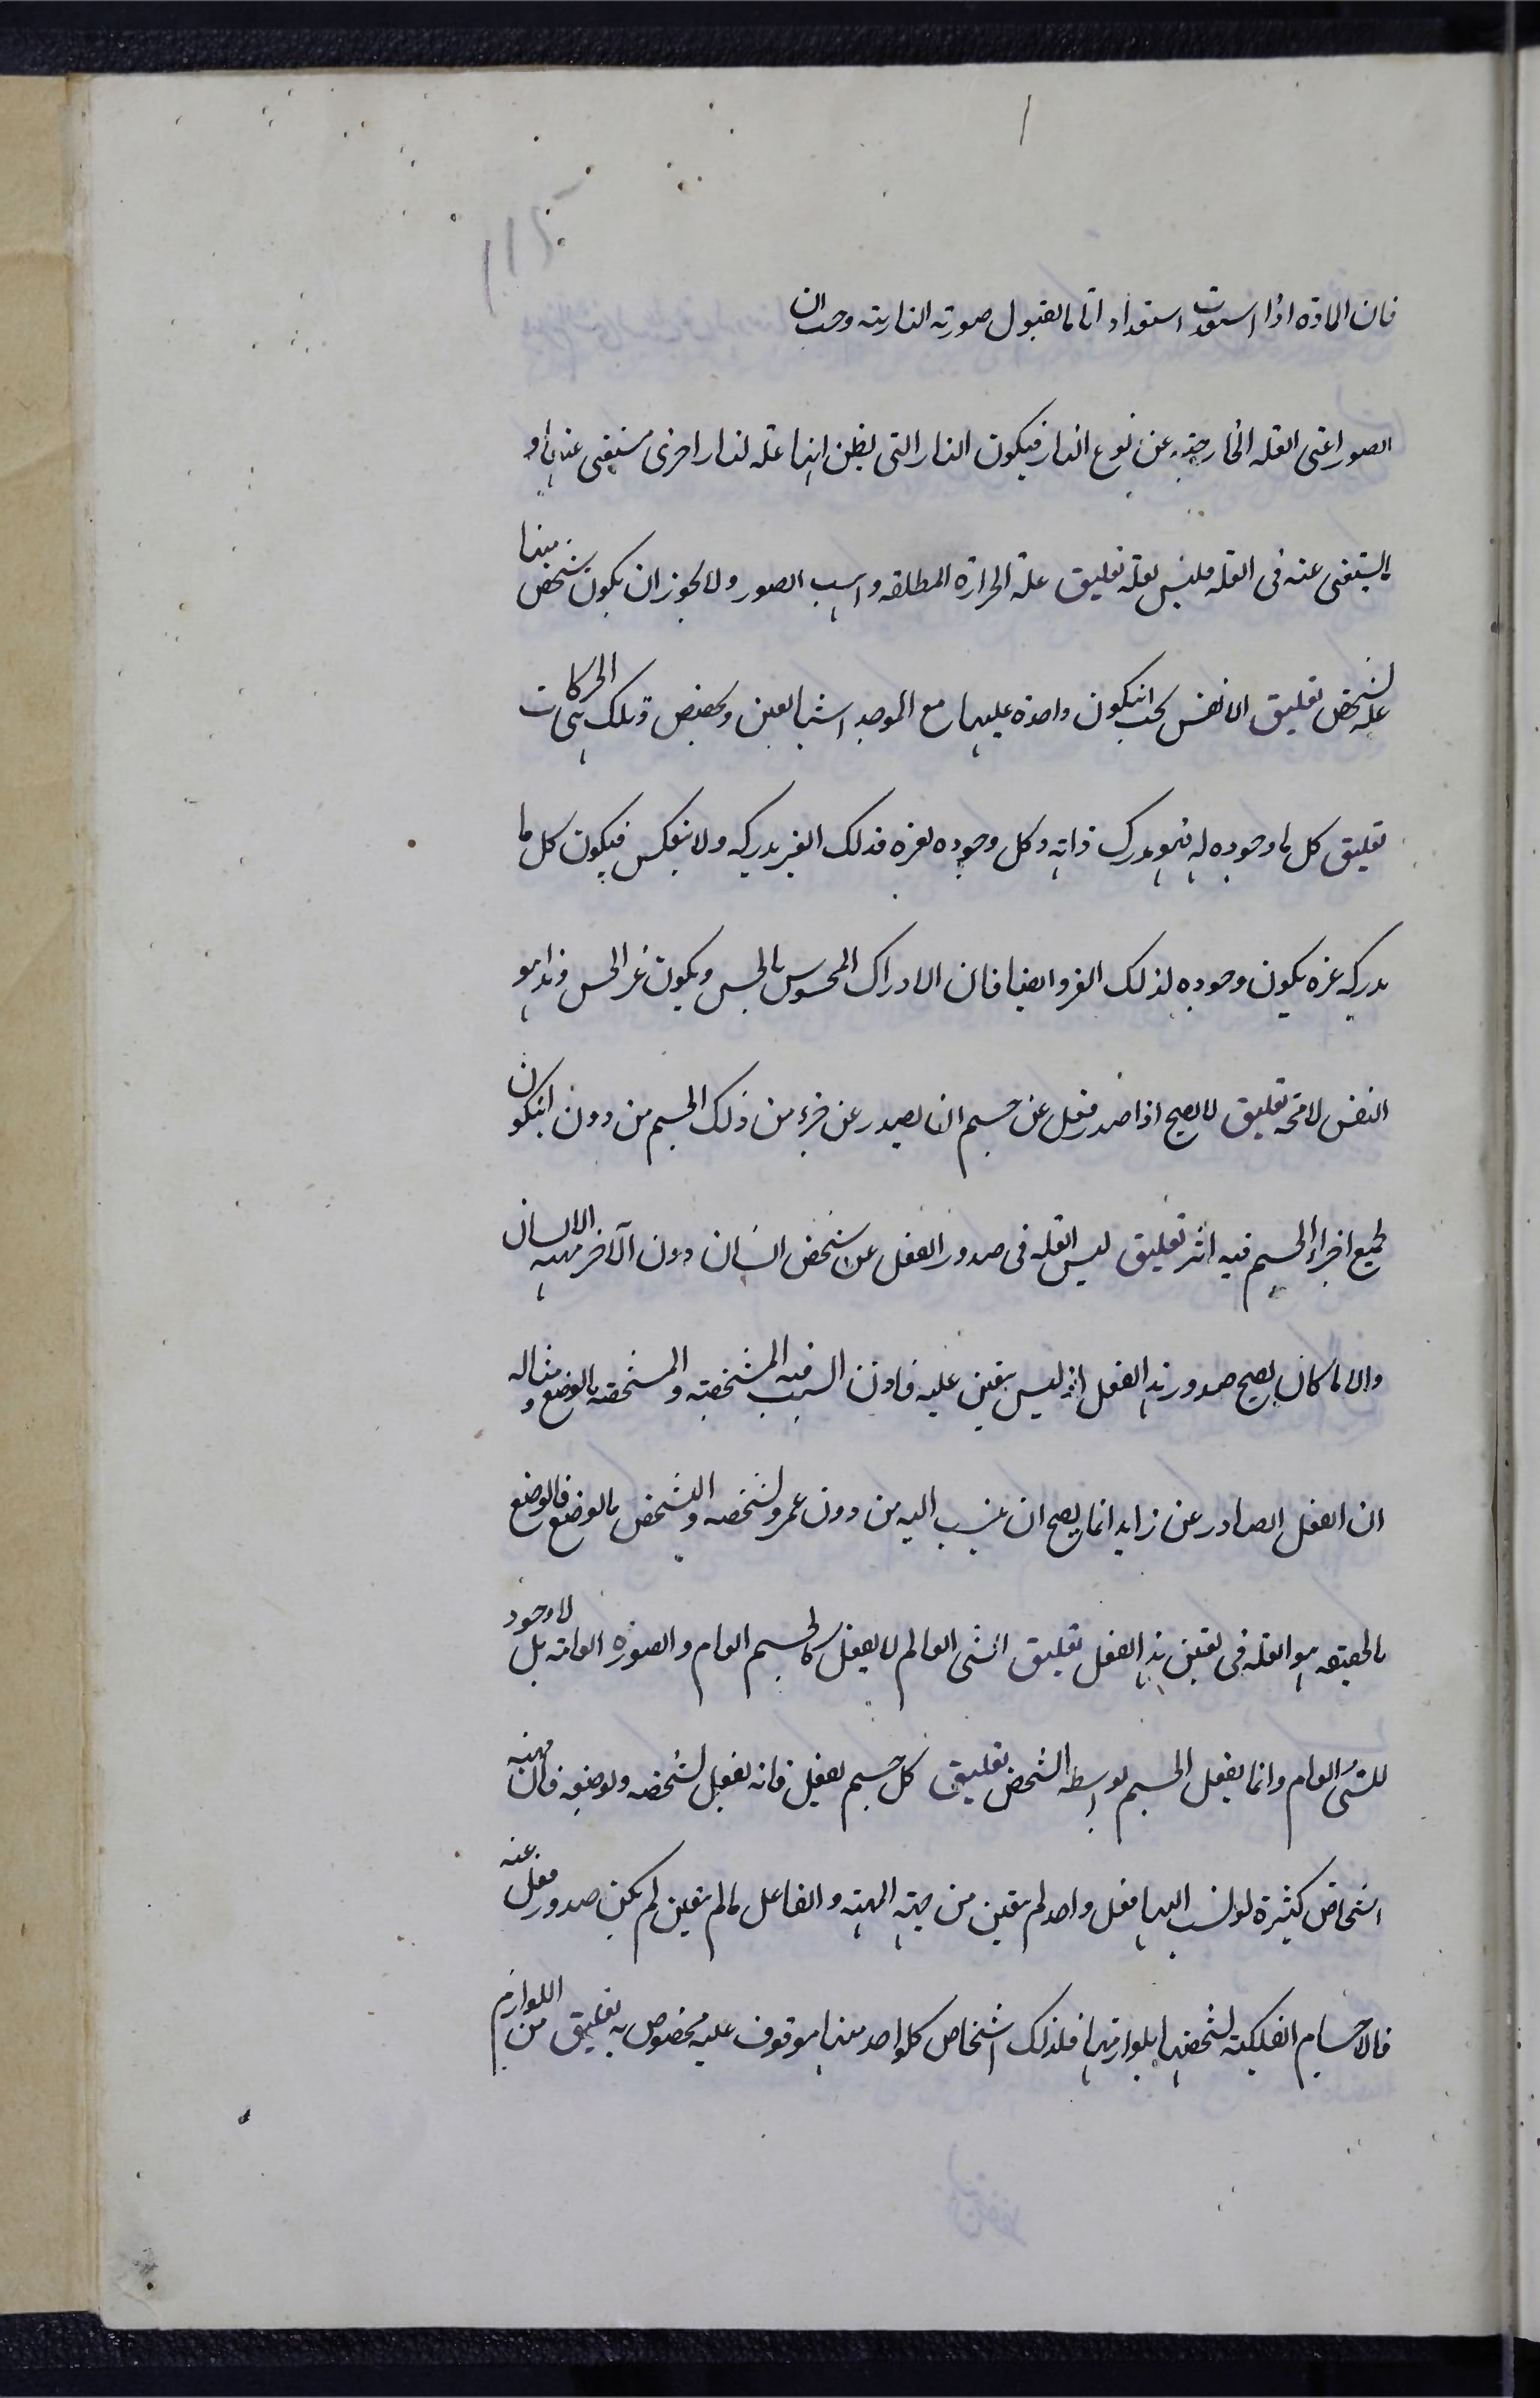 فان المادة اذا استعدت استعدادا تاما لقبول صورته النارية وجب ان
الصور اعنى العلة الخارجية عن نوع النار فيكون النار التى يظن انها علة لنار اخرى مستغنى عنها و
المستغنى عنه فى العلة فليس بعلة تعليق علة الحرارة المطلقة واهب الصور ولا يجوز ان يكون شخص منها
علة لشخص تعليق الانفس يجب ان يكون واحدة عليها مع الموجد اشيا تعين وتخصص وتلك هى الحركات
تعليق كل ما وجوده له فهو مدرك ذاته وكل وجوده لغيره فذلك الغير يدركه ولا ينعكس فيكون كل ما
يدركه غيره يكون وجوده لذلك الغير وايضا فان الادراك المحسوس بالحس ويكون غير الحس وهذا هو
النفس لا محة تعليق لا يصح اذا صدر فعل عن جسم ان يصدر عن جزء من ذلك الجسم من دون ان يكون
لجميع اجزاء الجسم فيه اثر تعليق ليس العلة فى صدور الفعل عن شخص انسان دون الآخر مهية الانسان
والا ما كان يصح صدور هذا الفعل اذ ليس يتعين عليه فاذن السبب فيه الشخصية والمتشخصة بالوضع ومثاله
ان الفعل الصادر عن زايد انما يصح ان ينسب اليه من دون عمرو لشخصه والتشخص بالوضع فالوضع
بالحقيقة هو العلة فى تعين هذا الفعل تعليق الشى العالم لا يفعل كالجسم العام والصورة العامة بل لا وجود
للشى العام وانما يفعل الجسم بواسطة الشخص تعليق كل جسم يفعل فانه يفعل لشخصه ولوضعه فان مهية
اشخاص كثيرة لو نسب اليها فعل واحد لم يتعين من جهة المهية والفاعل ما لم يتعين لم يكن صدور فعل عنه
فالاجسام الفلكية تشخصها بلوازمها فلذلك اشخاص كلواحد منها موقوف عليه مخصوص به تعليق من اللوازم